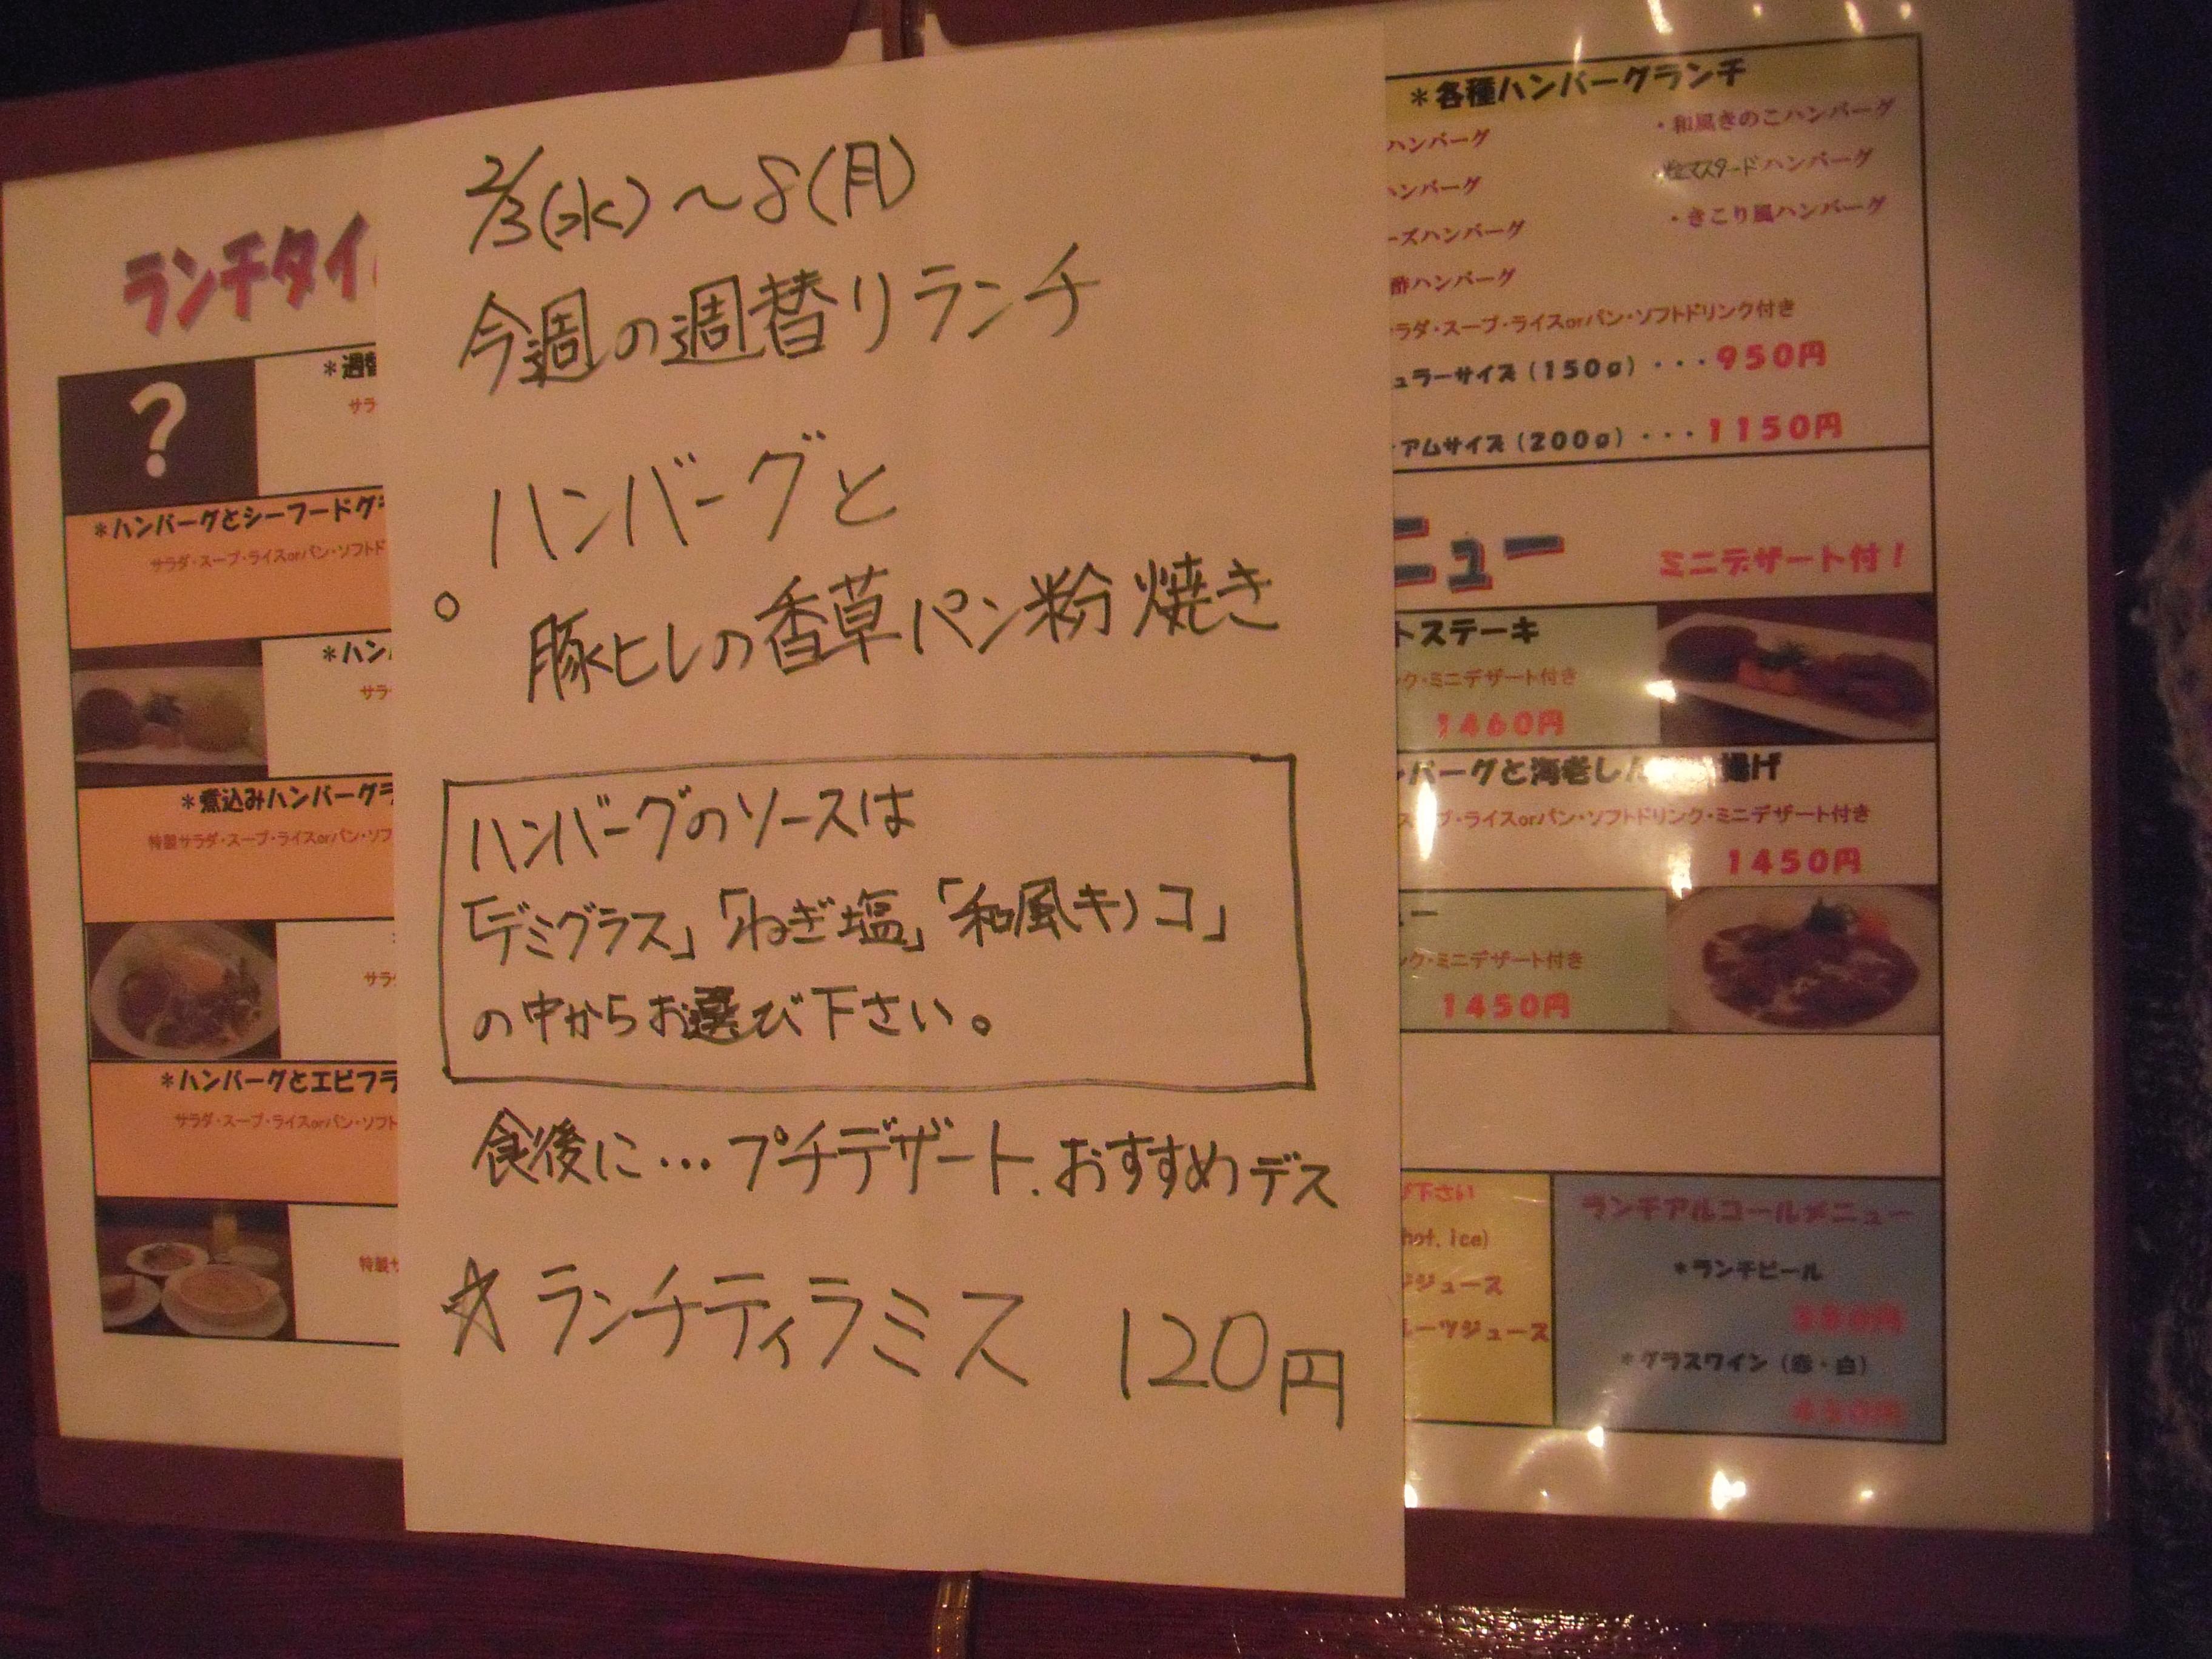 ランチタイ
*週替
サラ
*ハンバーグとシーフードグラ
サラダ・スープ・ライスorパン・ソフトド
*ハン
サラ
*煮込みハンバーグラ
特製サラダ・スープ・ライスorパン・ソフ
サラ
*ハンバーグとエビフラ
サラダ・スープ・ライスorパン・ソフト
特製サ
2/3(水)〜8(月)
今週の週替りランチ
ハンバーグと
豚ヒレの香草パン粉焼き
ハンバーグのソースは
「デミグラス」「ねぎ塩」「和風キノコ」
の中からお選び下さい。
食後に…プチデザート、おすすめデス
☆ランチティラミス 120円
*各種ハンバーグランチ
ハンバーグ ・和風きのこハンバーグ
ハンバーグ 粒マスタードハンバーグ
ーズハンバーグ ・きこり風ハンバーグ
酢ハンバーグ
ラダ・スープ・ライスorパン・ソフトドリンク付き
ュラーサイズ(150g)・・・950円
アムサイズ(200g)・・・1150円
ニュー ミニデザート付!
トステーキ
ク・ミニデザート付き
1460円
バーグと海老し 揚げ
プ・ライスorパン・ソフトドリンク・ミニデザート付き
1450円
ー
ンク・ミニデザート付き
1450円
び下さい
hot, ice)
ジジュース
ルーツジュース
ランチアルコールメニュー
*ランチビール
*グラスワイン(赤・白)